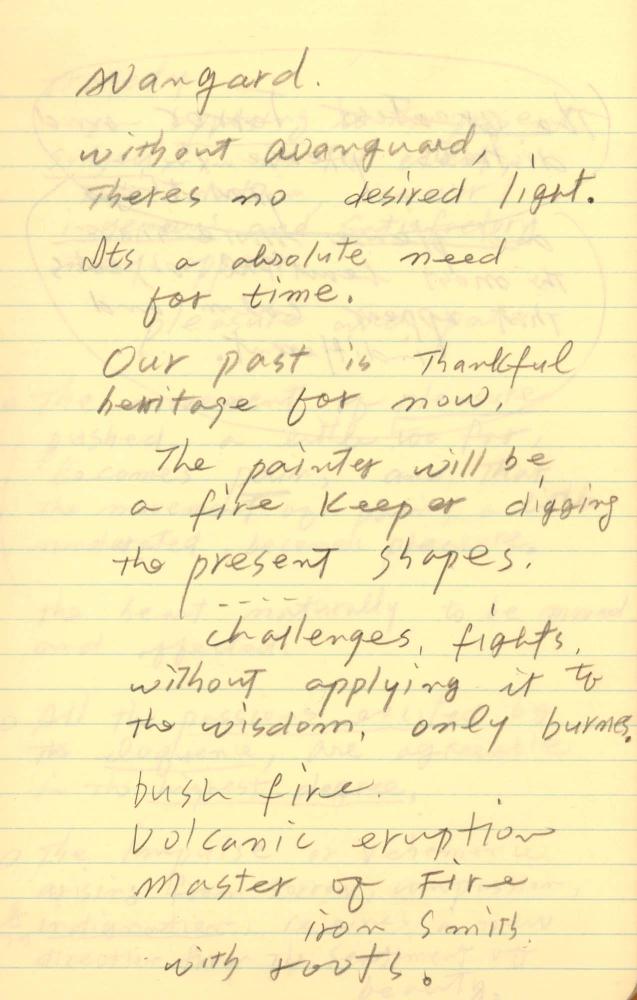 avangard.
without avanguard,
Theres no desired light.
Its a absolute need
for time.
Our past is Thankful
heritage for now.
The painter will be
a fire Keeper digging
the present shapes.
- - - -
challenges, fights,
without applying it to
the wisdom, only burnes.
bush fire.
Volcanic eruption
Master of Fire
iron Smith
with roots.